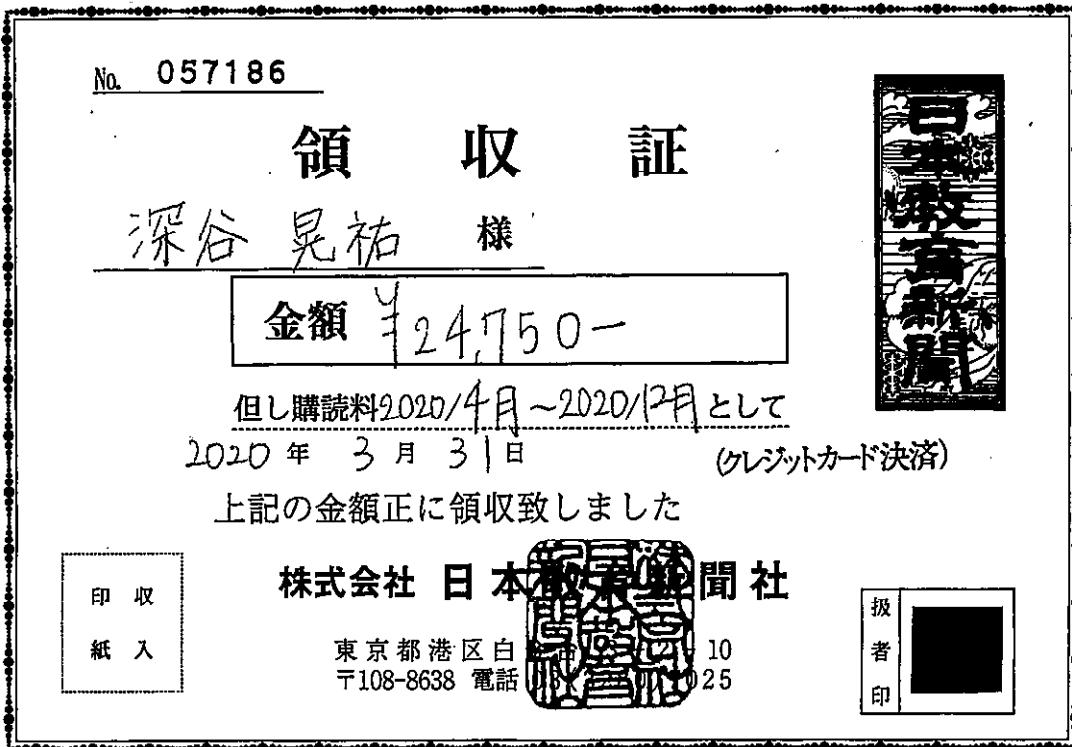 No. 057186
日本教育新聞
領収証
深谷 晃祐 様
金額 ¥24,750-
但し購読料2020/4月~2020/12月として
2020年 3月 31日
(クレジットカード決済)
上記の金額正に領収致しました
株式会社 日本教育新聞社
東京都港区白 10
〒108-8638 電話 025
収入
印紙
扱者印